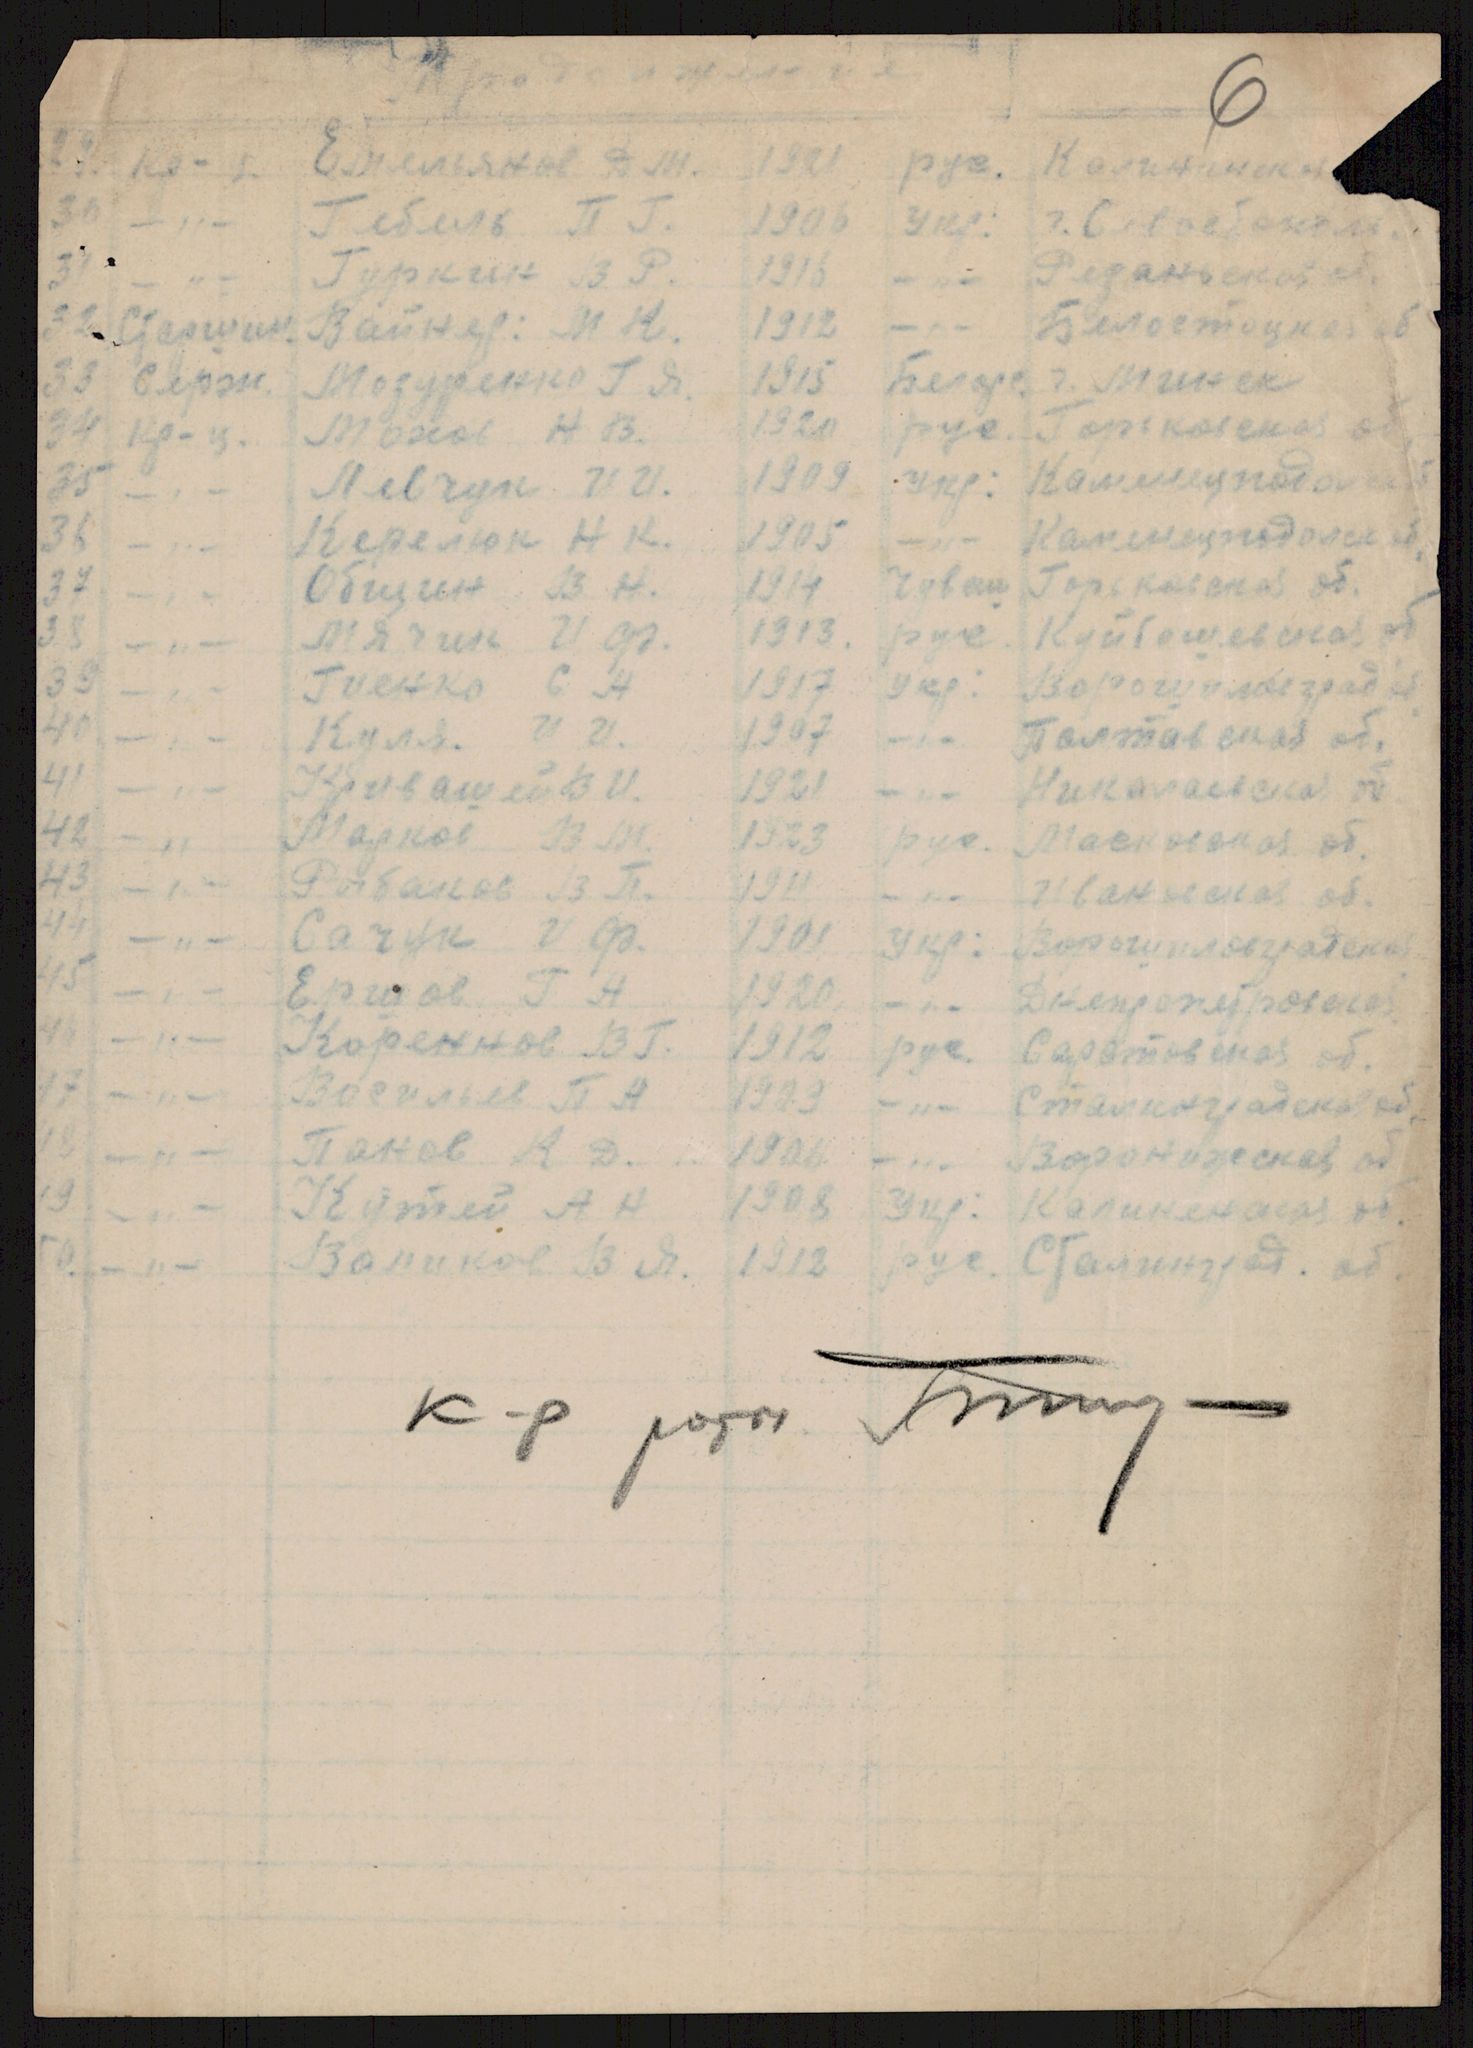 Продолжение
6
29. кр-ц. Емельянов Д М. 1921 рус. Калининска
30 -"- Гебель П Г. 1906 Укр: г. Севастополь.
31 -"- Гуркин В Р. 1916 -"- Резаньской об.
32 Старшин. Вайнер: М К. 1912 -"- Белостоцкая об
33 Серж. Мозуренко Г Я. 1915 Белорс. г. Минск
34 Кр-ц. Мохов Н В. 1920 рус. Горьковской об.
35 -"- Левчук И И. 1909 Укр: Каменецподольской
36 -"- Керелюк Н К. 1905 -"- Каменецподольск об.
37 -"- Общин В Н. 1914 Чуваш Горьковской об.
38 -"- Мячин И Ф. 1913. рус. Куйбышевской об
39 -"- Гиенко С А 1917 Укр: Ворошиловград об
40 -"- Куля. И И. 1907 -"- Полтавской об.
41 -"- Кривашей В И. 1921 -"- Николаевской об
42 -"- Марков В М. 1923 рус. Московской об.
43 -"- Рыбаков В П. 1911 -"- Ивановской об.
44 -"- Сачук И Ф. 1901 Укр: Ворошиловградской
45 -"- Ершов Г А 1920 -"- Днепропетровской
46 -"- Кореннов В Г. 1912 рус. Саратовской об.
47 -"- Васильев П А 1923 -"- Сталинградской об.
48 -"- Панов К Д. 1906 -"- Воронижской об
49 -"- Кутей А Н 1908 Укр: Калиненской об.
50. -"- Воликов В Я. 1912 рус. Сталинград. об.
к-р роты